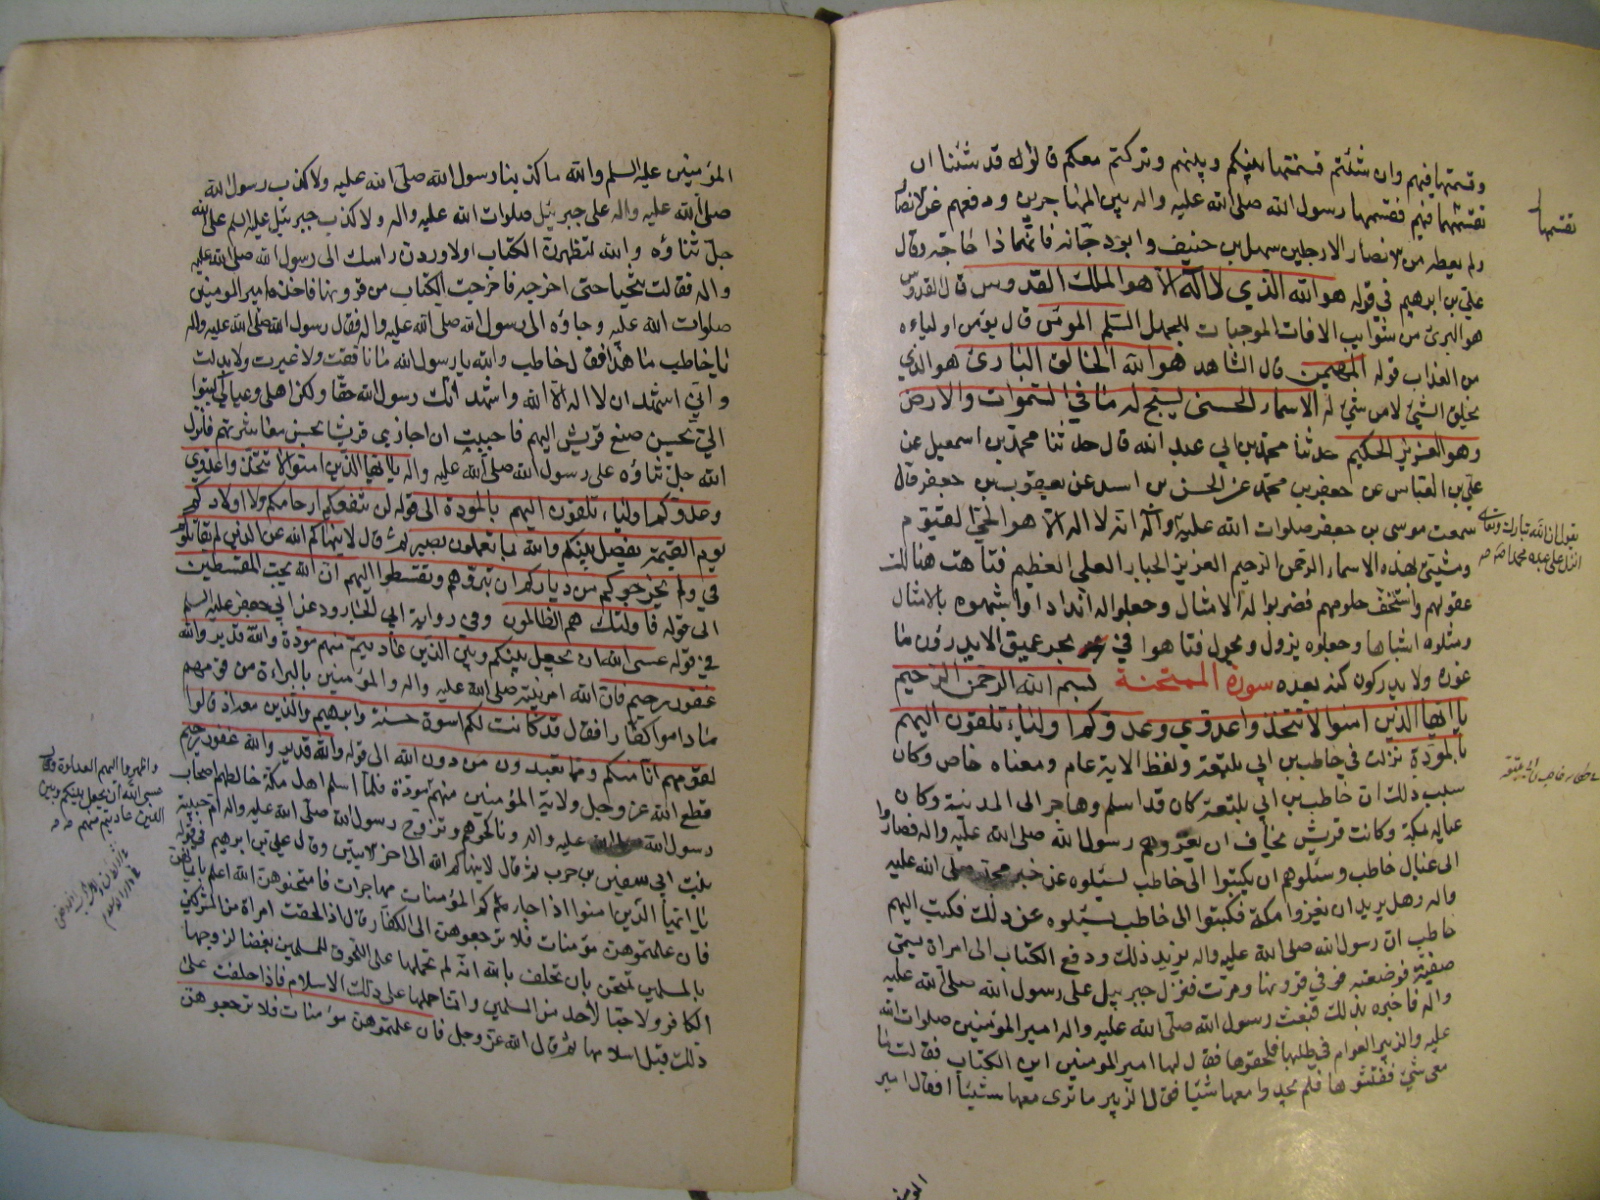 وقسمتها فيهم وان شئتم قسمتها بينكم وبينهم وتركتم معكم قالوا قد شئنا ان
تقسمها فيهم فقسمها رسول الله صلى الله عليه واله بين المهاجرين ودفعهم عن الانصار
ولم يعطه من الانصار الا رجلين سهل بن حنيف وابو دجانه فانهما ذا حاجه وقال
علي بن ابرهيم في قوله هو الله الذي لا اله الا هو الملك القدوس قال القدوس
هو البرئ من شوايب الافات الموجبات للجهل السلم المؤمن قال يؤمن اولياءه
من العذاب قوله المهيمن قال الشاهد هو الله الخالق البارئ هو الذي
يخلق الشئ لا من شئ له الاسماء الحسنى يسبح له ما في السموات والارض
وهو العزيز الحكيم حدثنا محمد بن ابي عبد الله قال حدثنا محمد بن اسمعيل عن
علي بن العباس عن جعفر بن محمد عن الحسن بن اسد عن يعقوب بن جعفر قال
سمعت موسى بن جعفر صلوات الله عليه واله انه لا اله الا هو الحي القيوم
ومشيتي بهذه الاسماء الرحمن الرحيم العزيز الجبار العلي العظيم فتاهت هنالك
عقولهم واستخف حلومهم فضربوا له الامثال وجعلوا له اندادا وشبهوه بالامثال
ومثلوه اشباها وجعلوه يزول ويحول فتاهوا في بحر عميق لا يدرون ما
غوره ولا يدركون كنه بعده سورة الممتحنة بسم الله الرحمن الرحيم
يا ايها الذين امنوا لا تتخذوا عدوي وعدوكم اولياء تلقون اليهم
بالمودة نزلت في حاطب بن ابي بلتعة ولفظ الاية عام ومعناه خاص وكان
سبب ذلك ان حاطب بن ابي بلتعة كان قد اسلم وهاجر الى المدينة وكان
عياله بمكة وكانت قريش تخاف ان يغزوهم رسول الله صلى الله عليه واله فصاروا
الى عيال حاطب وسئلوهم ان يكتبوا الى حاطب يسئلوه عن خبر محمد صلى الله عليه
واله وهل يريد ان يغزوا مكة فكتبوا الى حاطب يسئلوه عن ذلك فكتب اليهم
حاطب ان رسول الله صلى الله عليه واله يريد ذلك ودفع الكتاب الى امراة يسمى
صفية فوضعته في قرونها ومرت فنزل جبرييل على رسول الله صلى الله عليه
واله فاخبره بذلك فبعث رسول الله صلى الله عليه واله امير المؤمنين صلوات الله
عليه والزبير العوام في طلبها فلحقوها فقال لها امير المومنين اين الكتاب فقالت ما
معي شئ ففتشوها فلم يجدوا معها شيئا فقال الزبير ما نرى معها شيئا فقال امير
تقسمها
يقول ان الله تبارك وتعالى
انزل على عبده محمد
المؤمنين عليه السلم والله ما كذبنا رسول الله صلى الله عليه ولا كذب رسول الله
صلى الله عليه واله على جبرئيل صلوات الله عليه واله ولا كذب جبرئيل عليه السلم على الله
جل ثناؤه والله لتظهرن الكتاب او لاوردن راسك الى رسول الله صلى الله عليه
واله فقالت تنحيا حتى اخرجه فاخرجت الكتاب من قرونها فاخذه امير المومنين
صلوات الله عليه وجاؤه الى رسول الله صلى الله عليه واله فقال رسول الله صلى الله عليه واله
يا حاطب ما هذا فقال حاطب والله يا رسول الله ما نافقت ولا غيرت ولا بدلت
واني اشهد ان لا اله الا الله واشهد انك رسول الله حقا ولكن اهلي وعيالي كتبوا
الي بحسن صنع قريش اليهم فاحببت ان اجازي قريشا بحسن معاشرتهم فانزل
الله جل ثناؤه على رسول الله صلى الله عليه واله يا ايها الذين امنوا لا تتخذوا عدوي
وعدوكم اولياء تلقون اليهم بالمودة الى قوله لن تنفعكم ارحامكم ولا اولادكم
يوم القيمة يفصل بينكم والله بما تعملون بصير ثم قال لا ينهاكم الله عن الذين لم يقاتلوكم
في ولم يخرجوكم من دياركم ان تبروهم وتقسطوا اليهم ان الله يحب المقسطين
الى قوله فاولئك هم الظالمون وفي رواية ابي الجارود عن ابي جعفر عليه السلم
في قوله عسى الله ان يجعل بينكم وبين الذين عاديتم منهم مودة والله قدير والله
غفور رحيم فان الله امر نبيه صلى الله عليه واله والمؤمنين بالبراءة من قومهم
ما داموا كفارا فقال قد كانت لكم اسوة حسنة في ابرهيم والذين معه اذ قالوا
لقومهم انا منكم ومما تعبدون من دون الله الى قوله والله قدير والله غفور رحيم
قطع الله عز وجل ولاية المؤمنين منهم مودة فلما اسلم اهل مكة خالطهم اصحاب
رسول الله عليه واله وناكحوهم وتزوج رسول الله صلى الله عليه واله ام حبيبة
بنت ابي سفين بن حرب ثم قال لا ينهاكم الله الى اخر الايتين وقال علي بن ابرهيم في قوله
يا ايها الذين امنوا اذا جاءكم المؤمنات مهاجرات فامتحنوهن الله اعلم بايمانهن
فان علمتموهن مؤمنات فلا ترجعوهن الى الكفار قال اذا لحقت امراة من المشركين
بالمسلمين تمتحن بان تحلف بالله انه لم تحملها على اللحوق للمسلمين بغضا لزوجها
الكافر ولا حبا لأحد من المسلمين وانما حملها على ذلك الاسلام فاذا حلفت على
ذلك قبل اسلامها ثم قال الله عز وجل فان علمتموهن مؤمنات فلا ترجعوهن
واظهروا لهم العداوة فقال
عسى الله أن يجعل بينكم وبين
الذين عاديتم منهم